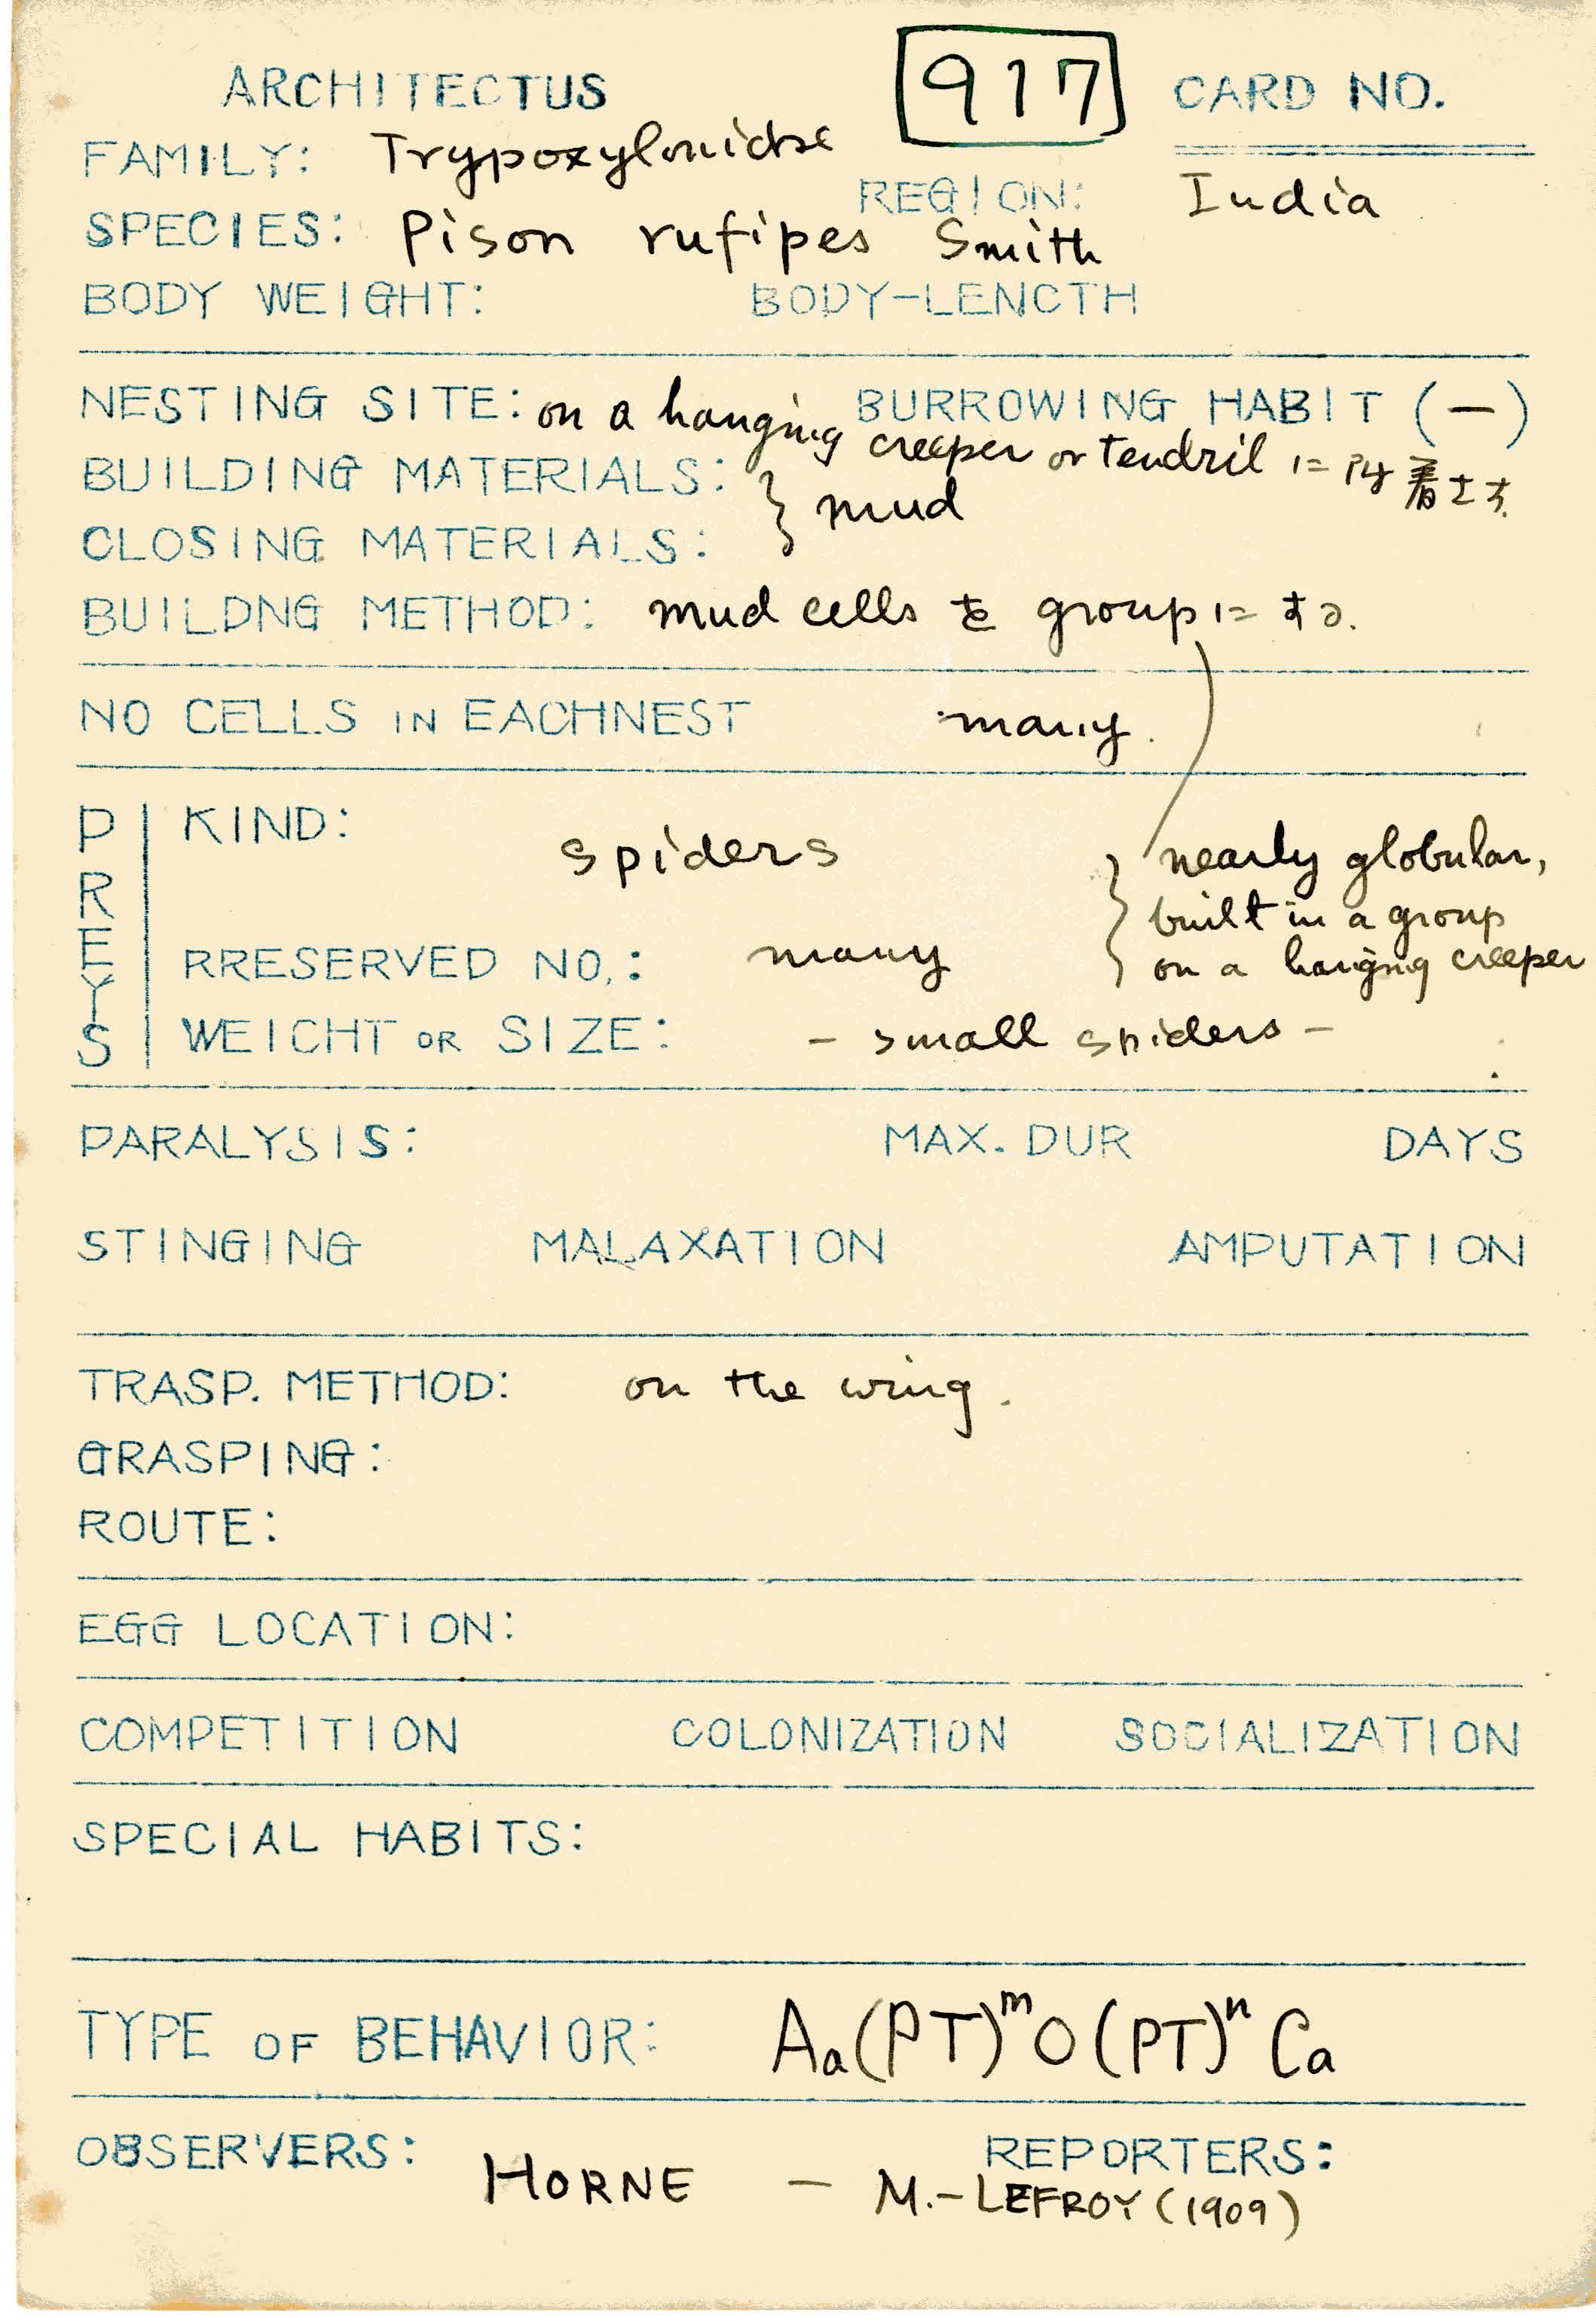 ARCHITECTUS 917 CARD NO.
FAMILY: Trypoxylonidae
REGION: India
SPECIES: Pison rufipes Smith
BODY WEIGHT: BODY-LENCTH
NESTING SITE: on a hanging creeper or tendril ニ附着セズ. BURROWING HABIT (—)
BUILDING MATERIALS: } mud
CLOSING MATERIALS:
BUILDNG METHOD: mud cells を group ニする.
NO CELLS IN EACHNEST many.
PREYS
KIND: spiders
nearly globular,
built in a group
on a hanging creeper
RRESERVED NO.: many
WEICHT OR SIZE: – small spiders –
PARALYSIS: MAX. DUR DAYS
STINGING MALAXATION AMPUTATION
TRASP. METHOD: on the wing.
GRASPING:
ROUTE:
EGG LOCATION:
COMPETITION COLONIZATION SOCIALIZATION
SPECIAL HABITS:
TYPE OF BEHAVIOR: Aa(PT)ᵐO(PT)ⁿCa
OBSERVERS: REPORTERS:
HORNE – M.-LEFROY (1909)